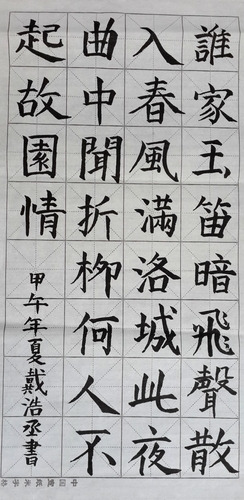 誰家玉笛暗飛聲散
入春風滿洛城此夜
曲中聞折柳何人不
起故園情
甲午年夏戴浩丞書